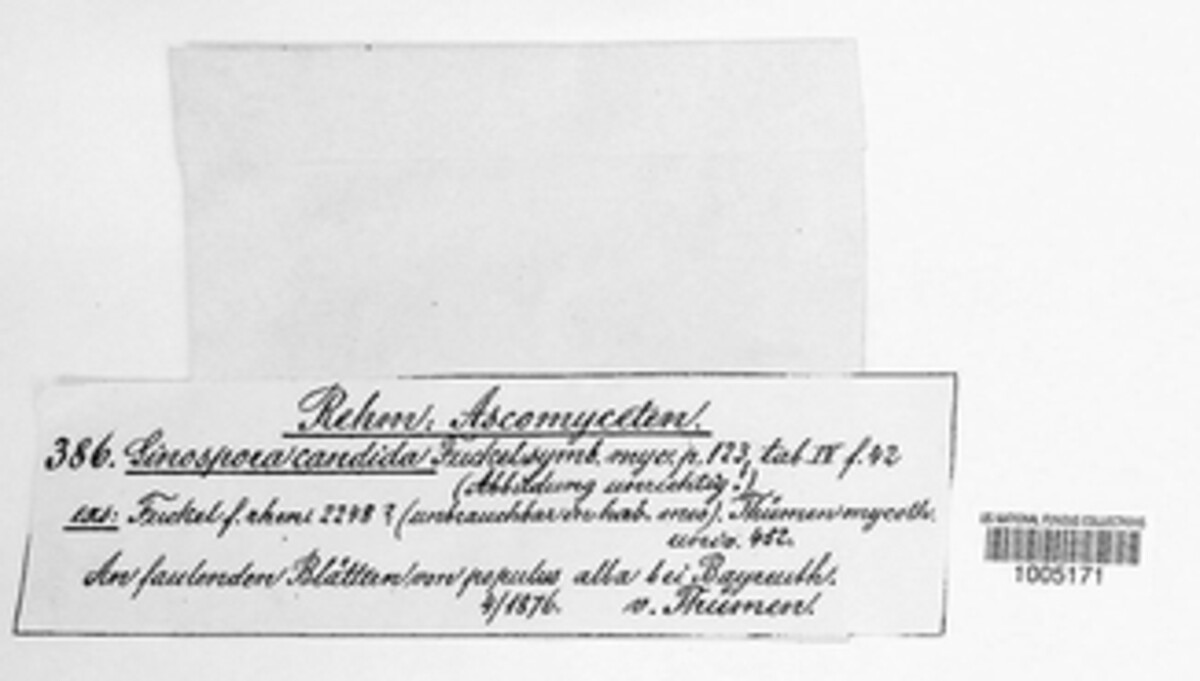 Rehm: Ascomyceten.
386. Linospora candida Fuckel symb. myc. p. 123, tab. IV f. 42
(Abbildung unrichtig!)
exs: Fuckel f. rhen. 2248 ? (unbrauchbar in herb. meo). Thümen mycoth.
univ. 462.
An faulenden Blättern von populus alba bei Bayreuth.
4/1876. v. Thümen.
US NATIONAL FUNGUS COLLECTIONS
1005171